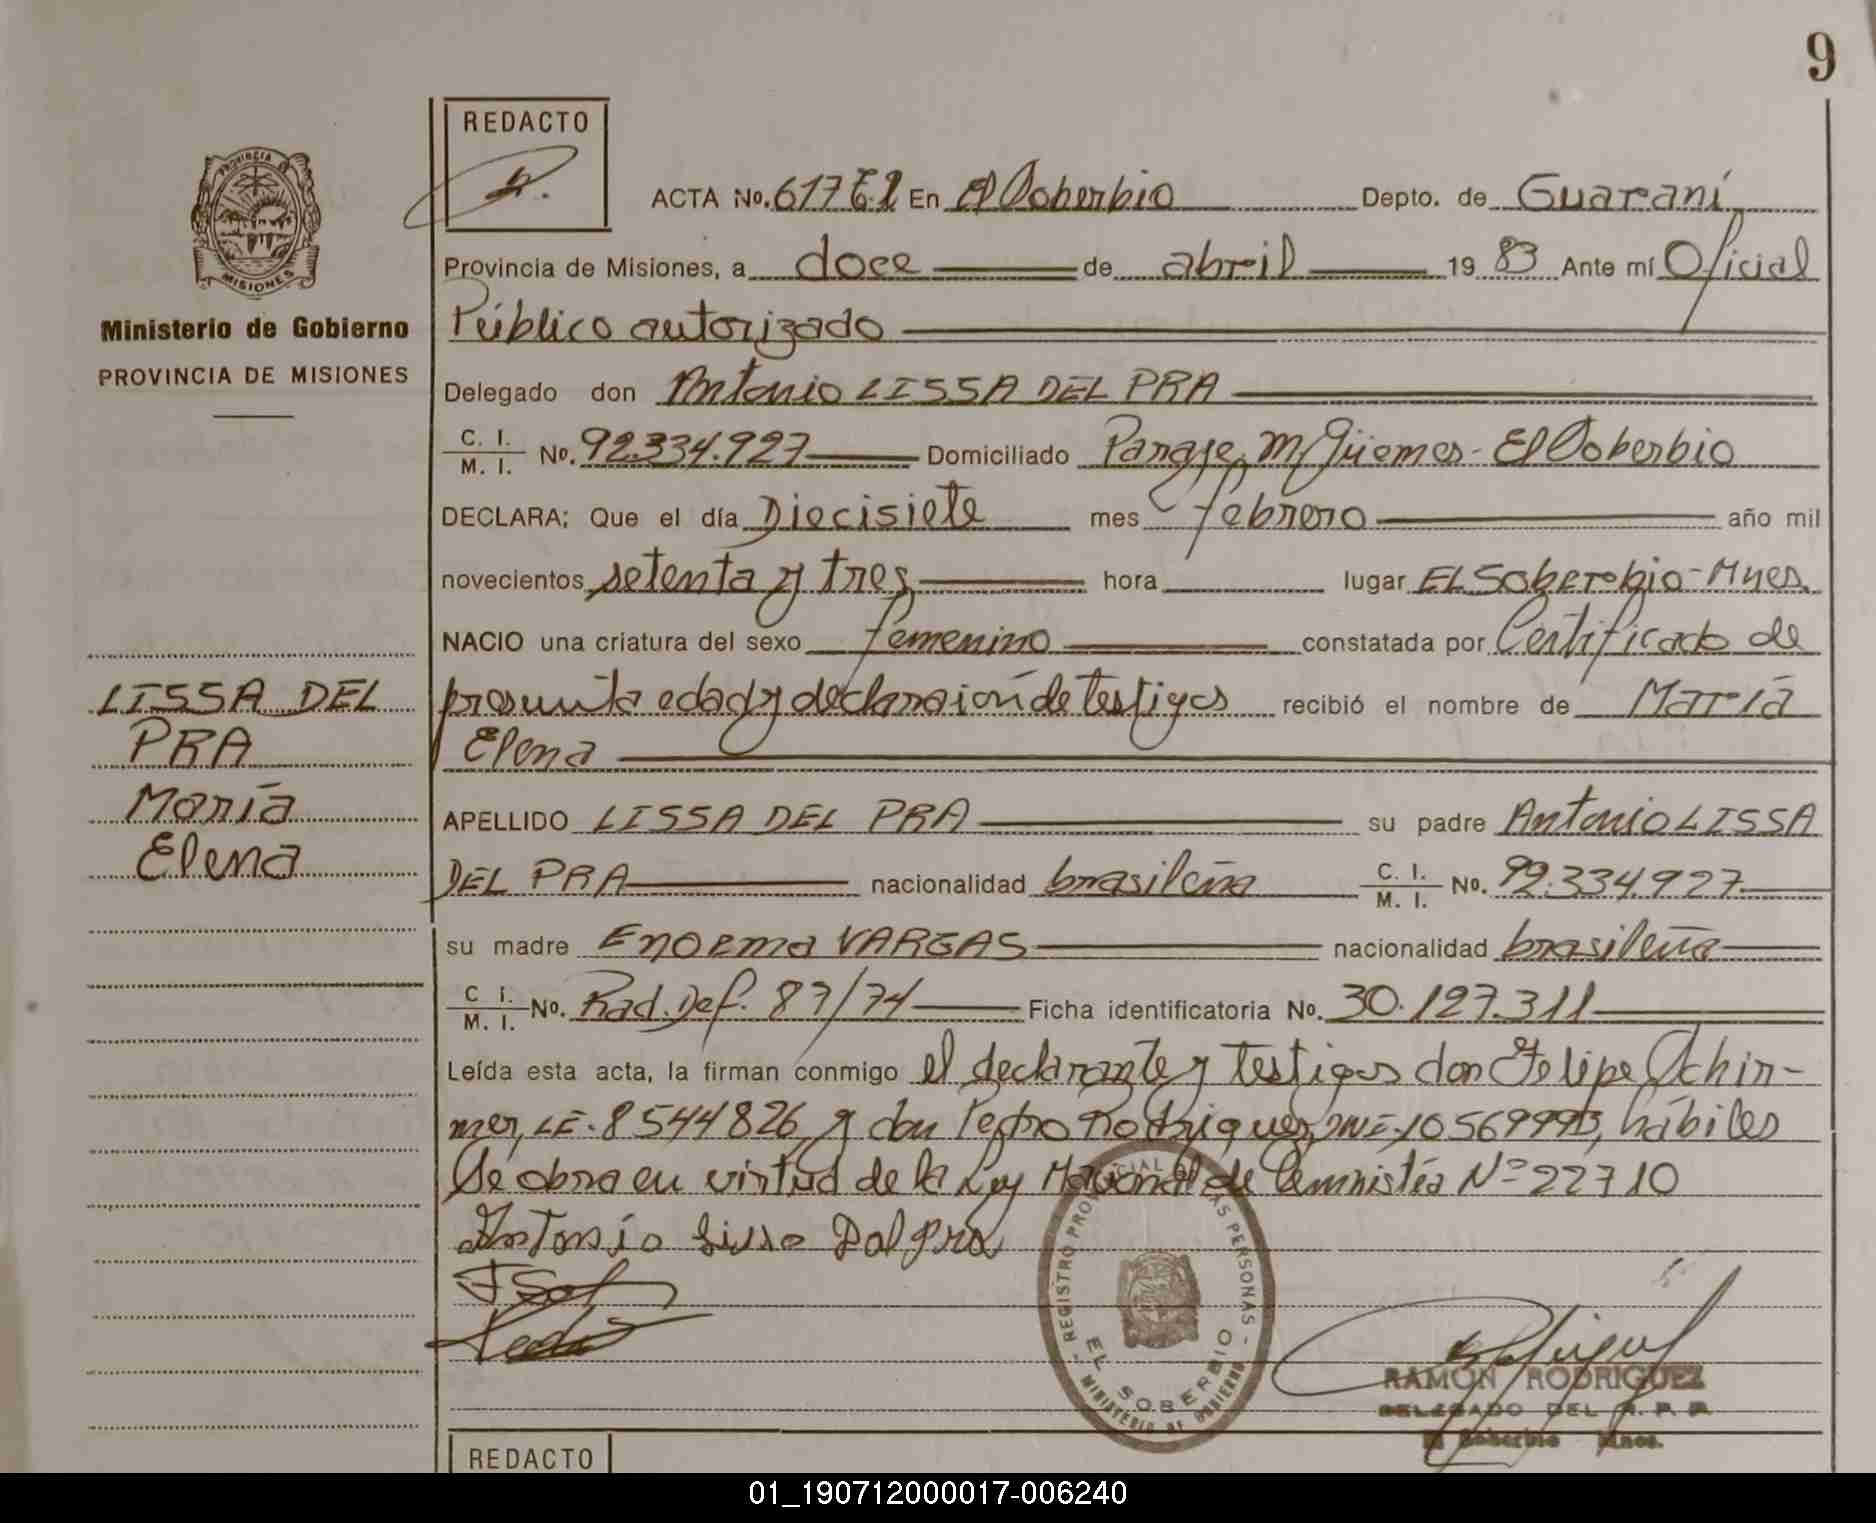 9
REDACTO
PROVINCIA
MISIONES
Ministerio de Gobierno
PROVINCIA DE MISIONES
ACTA No. 617 En El Soberbio Depto. de Guaraní
Provincia de Misiones, a doce de abril 19 83 Ante mí Oficial
Público autorizado
Delegado don Antonio LISSA DEL PRA
C. I. M. I. No. 92.334.927 Domiciliado Paraje M Güemes - El Soberbio
DECLARA: Que el día Diecisiete mes febrero año mil
novecientos setenta y tres hora lugar EL Soberbio - Mnes.
NACIO una criatura del sexo femenino constatada por Certificado de
presunta edad y declaración de testigos recibió el nombre de María
Elena
LISSA DEL
PRA
María
Elena
APELLIDO LISSA DEL PRA su padre Antonio LISSA
DEL PRA nacionalidad brasileña C. I. M. I. No. 92.334.927
su madre Enoema VARGAS nacionalidad brasileña
C I. M. I. No. Rad. Def. 87/74 Ficha identificatoria No. 30.127.311
Leída esta acta, la firman conmigo el declarante y testigos don Felipe Schir-
mer, LE. 8544826 y don Pedro Rodriguez, DNI. 10569993, hábiles
Se obra en virtud de la Ley Nacional de Amnistía Nº 22710
Antonio Lissa Dal Pra
REGISTRO PROVINCIAL DE LAS PERSONAS
EL SOBERBIO
MINISTERIO DE GOBIERNO
RAMON RODRIGUEZ
DELEGADO DEL R. P. P.
El Soberbio Mnes.
REDACTO
01_190712000017-006240